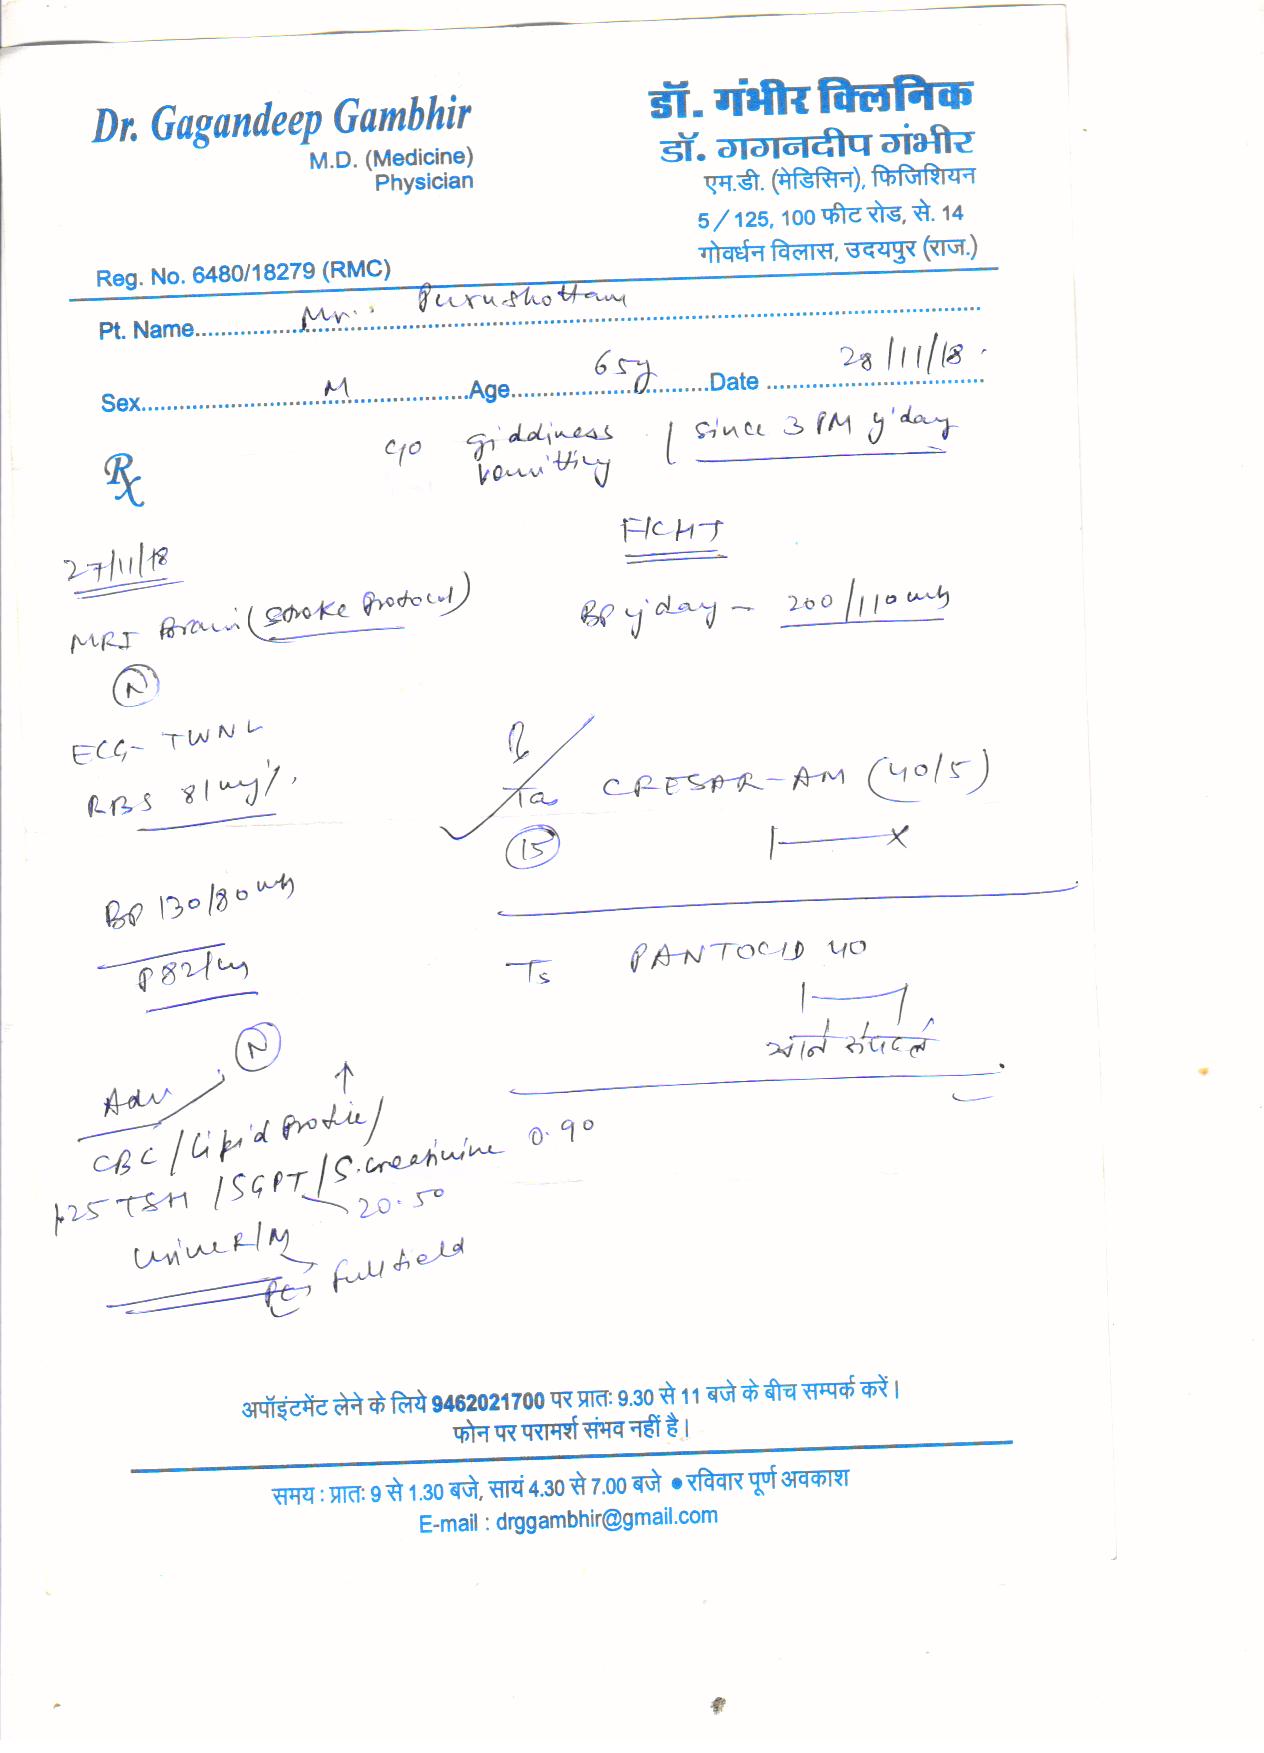 Dr. Gagandeep Gambhir
M.D. (Medicine)
Physician
Reg. No. 6480/18279 (RMC)
डॉ. गंभीर क्लिनिक
डॉ. गगनदीप गंभीर
एम.डी. (मेडिसिन), फिजिशियन
5/125, 100 फीट रोड, से. 14
गोवर्धन विलास, उदयपुर (राज.)
Pt. Name Mr. Purushottam
Sex M Age 65y Date 28/11/18
Rx
c/o giddiness since 3 PM y'day
vomitting
F/C HT
BP y'day - 200/110
27/11/18
MRI Brain (stroke protocol)
N
ECG- TWNL
RBS 81 mg%
BP 130/80
P 82/
N
Ta CRESAR-AM (40/5)
15
PANTOCID 40
Adv
CBC / Lipid Profile /
TSH / SGPT / S. creatinine 0.90
20.50
Urine R/M
full field
अपॉइंटमेंट लेने के लिये 9462021700 पर प्रातः 9.30 से 11 बजे के बीच सम्पर्क करें।
फोन पर परामर्श संभव नहीं है।
समय : प्रातः 9 से 1.30 बजे, सायं 4.30 से 7.00 बजे ● रविवार पूर्ण अवकाश
E-mail : drggambhir@gmail.com